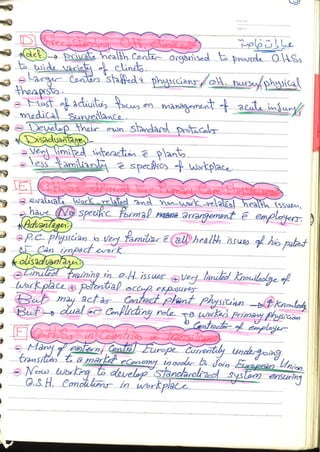 D Freestanding O.H. Clinics
عيادات خاصة
*def. → private health center organised to provide O.H.Ss
to wide variety of clinets.
- Larger Centers staffed c̄ physicians / OH. nurses / physical
therapists.
- Most of activities focus on management of acute injury
medical surveillance.
- Develop their own Standard protocols.
*Disadvantages
- Very limited interaction c̄ plants.
- less familiarity c̄ specifics of workplace.
E
- evaluate work related and non-work-related health issues,
- have NO specific formal arrangement c̄ employers.
*Advantages:
- P.C. physician is very familiar c̄ all health issues of his patient
Can impact work.
*disadvantages:
- Limited training in O.H. issues very limited knowledge of
workplace potential occup exposures
But may act as Contract plant Physician → ↑ Knowledge
But → dual or Conflicting role → workers primary physician
Contractor of employer
F O.H.Ss in Countries in
- Many of eastern Central Europe Currently undergoing
transition to a market economy inorder to Join European Union
- Now working to develop standardized system ensuring
O.S.H. Conditions in workplace